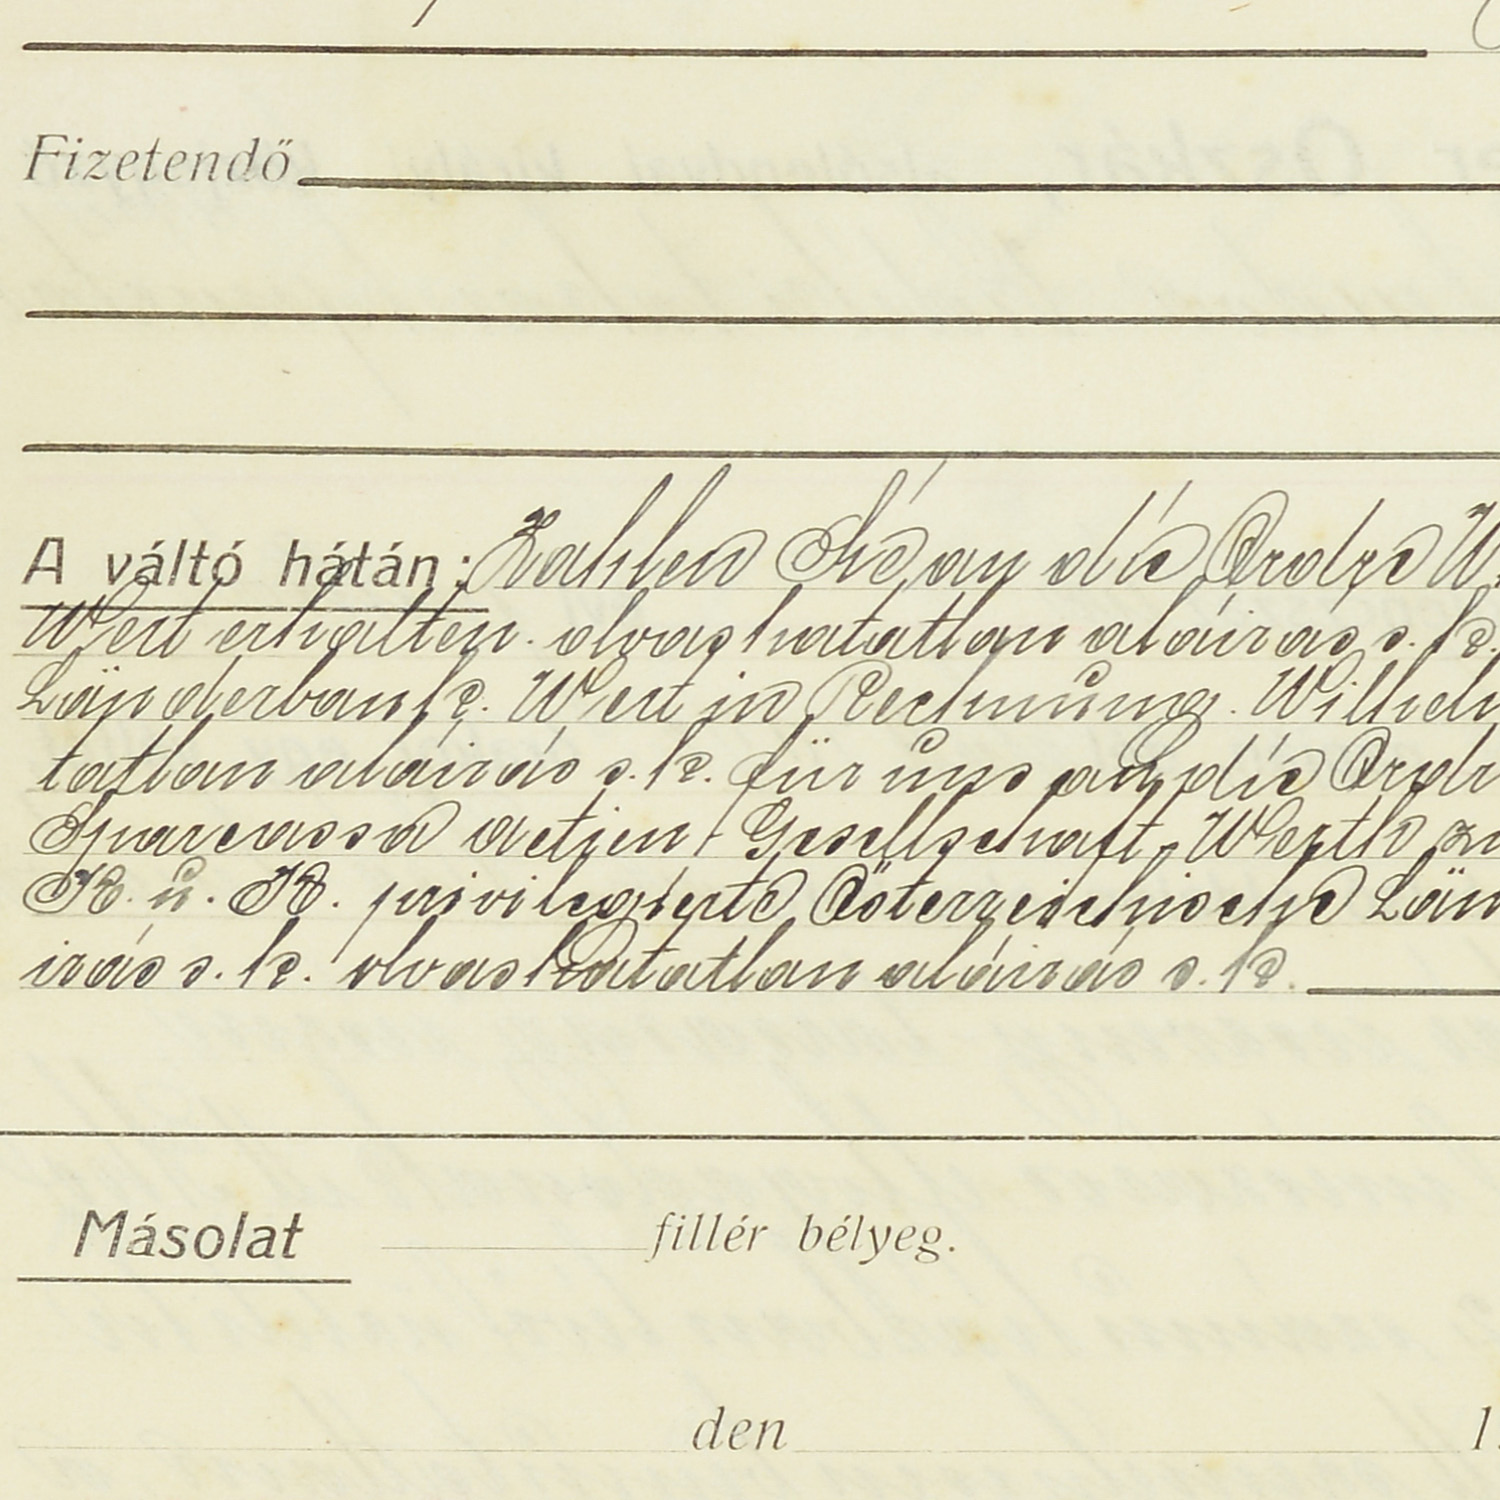 Fizetendő
A váltó hátán: Zahlen Sie an die Ordre
Wert erhalten. olvashatatlan aláirás s. k.
Länderbank. Wert in Rechnung. Wilhelm
tatlan aláirás s. k. für uns an die Ordr
Sparcassa actien Gesellschaft. Werth
K. u. K. privilegierte Österreichische Län
irás s. k. olvashatatlan aláirás s. k.
Másolat fillér bélyeg.
den 1